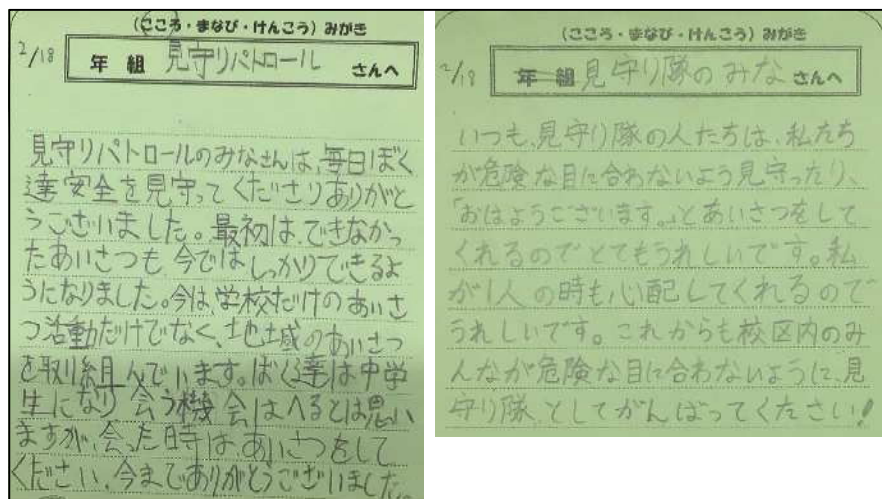 (こころ・まなび・けんこう) みがき
2/18
年 組 見守りパトロール さんへ
見守りパトロールのみなさんは、毎日ぼく
達安全を見守ってくださりありがと
うございました。最初は、できなかっ
たあいさつも今ではしっかりできるよ
うになりました。今は、学校だけのあいさ
つ活動だけでなく、地域のあいさつ
を取り組んでいます。ぼく達は中学
生になり会う機会はへるとは思い
ますが、会った時は、あいさつをして
ください、今までありがとうございました。
(こころ・まなび・けんこう) みがき
2/18
年 組 見守り隊のみな さんへ
いつも、見守り隊の人たちは、私たち
が危険な目に合わないよう見守ったり、
「おはようございます。」とあいさつをして
くれるのでとてもうれしいです。私
が1人の時も心配してくれるので
うれしいです。これからも校区内のみ
んなが危険な目に合わないように、見
守り隊としてがんばってください!